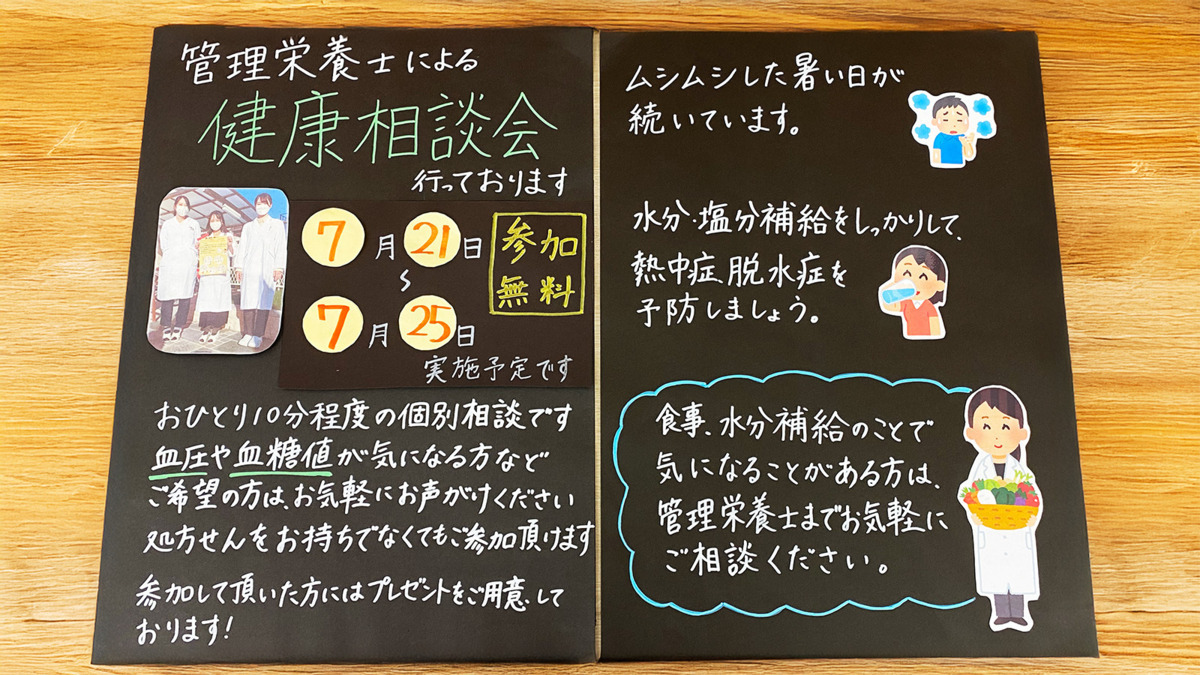 管理栄養士による
健康相談会
行っております
7月21日
~
7月25日
参加
無料
実施予定です
おひとり10分程度の個別相談です
血圧や血糖値が気になる方など
ご希望の方は、お気軽にお声がけください
処方せんをお持ちでなくてもご参加頂けます
参加して頂いた方にはプレゼントをご用意して
おります!
ムシムシした暑い日が
続いています。
水分・塩分補給をしっかりして、
熱中症、脱水症を
予防しましょう。
食事、水分補給のことで
気になることがある方は、
管理栄養士までお気軽に
ご相談ください。